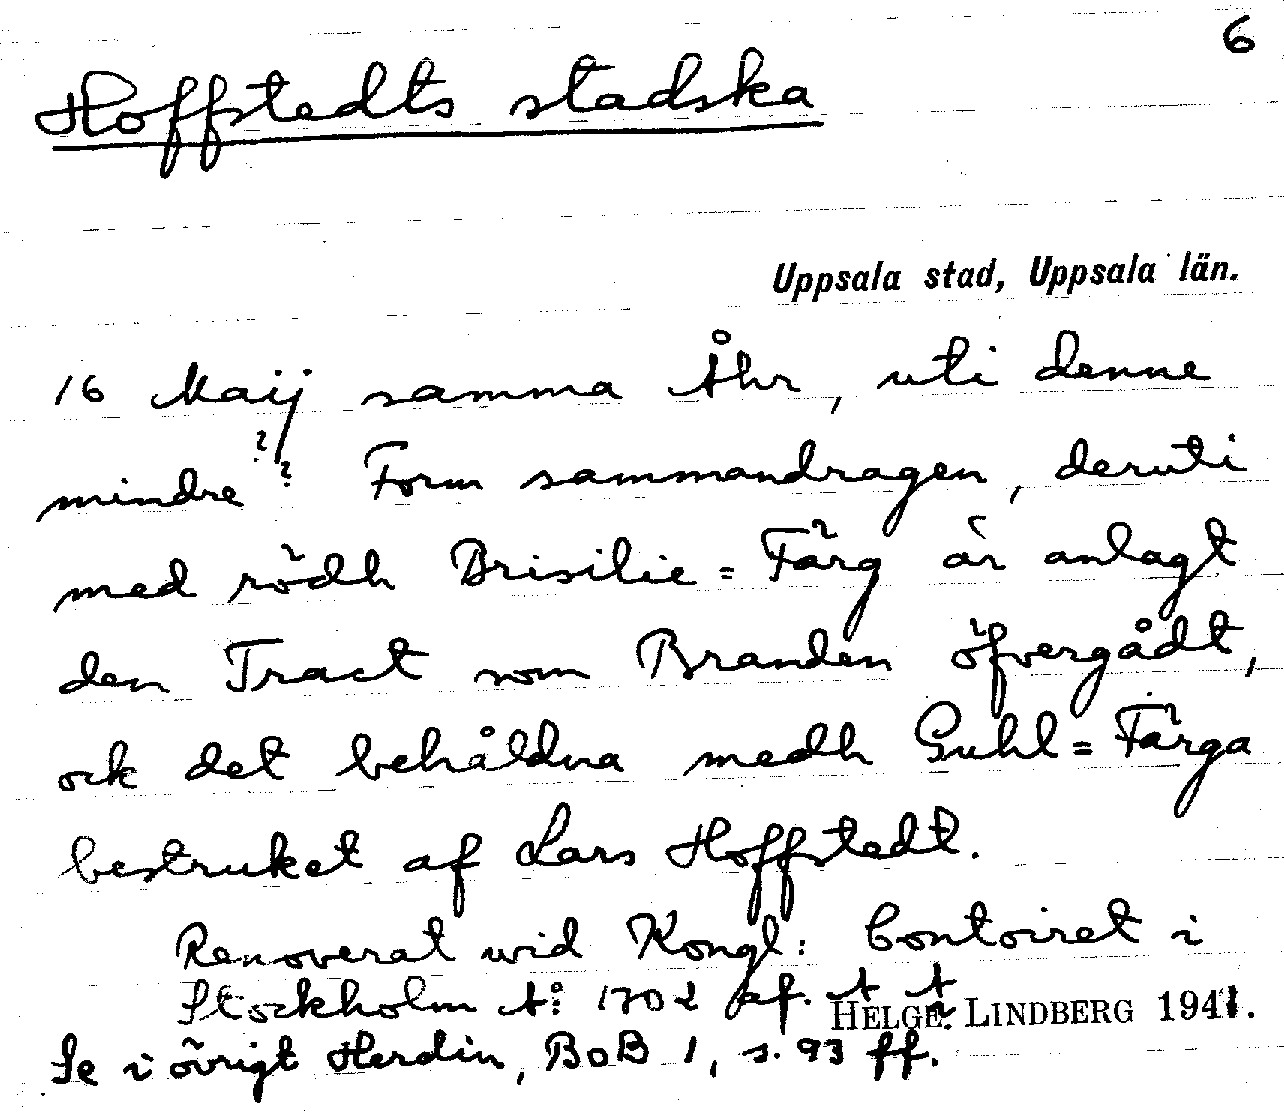 6
Hoffstedts stadska
Uppsala stad, Uppsala län.
16 Maij samma Åhr, uti denne
mindre?? Form sammandragen, deruti
med rödh Brisilie=Färg är anlagt
den Tract som Branden öfvergådt,
ock det behåldna medh Guhl=Färga
bestruket af Lars Hoffstedt.
Renoverat wid Kongl: Contoiret i
Stockholm A:o 1702 af. A A
HELGE LINDBERG 1941.
Se i övrigt Herdin, BoB 1, s. 93 ff.